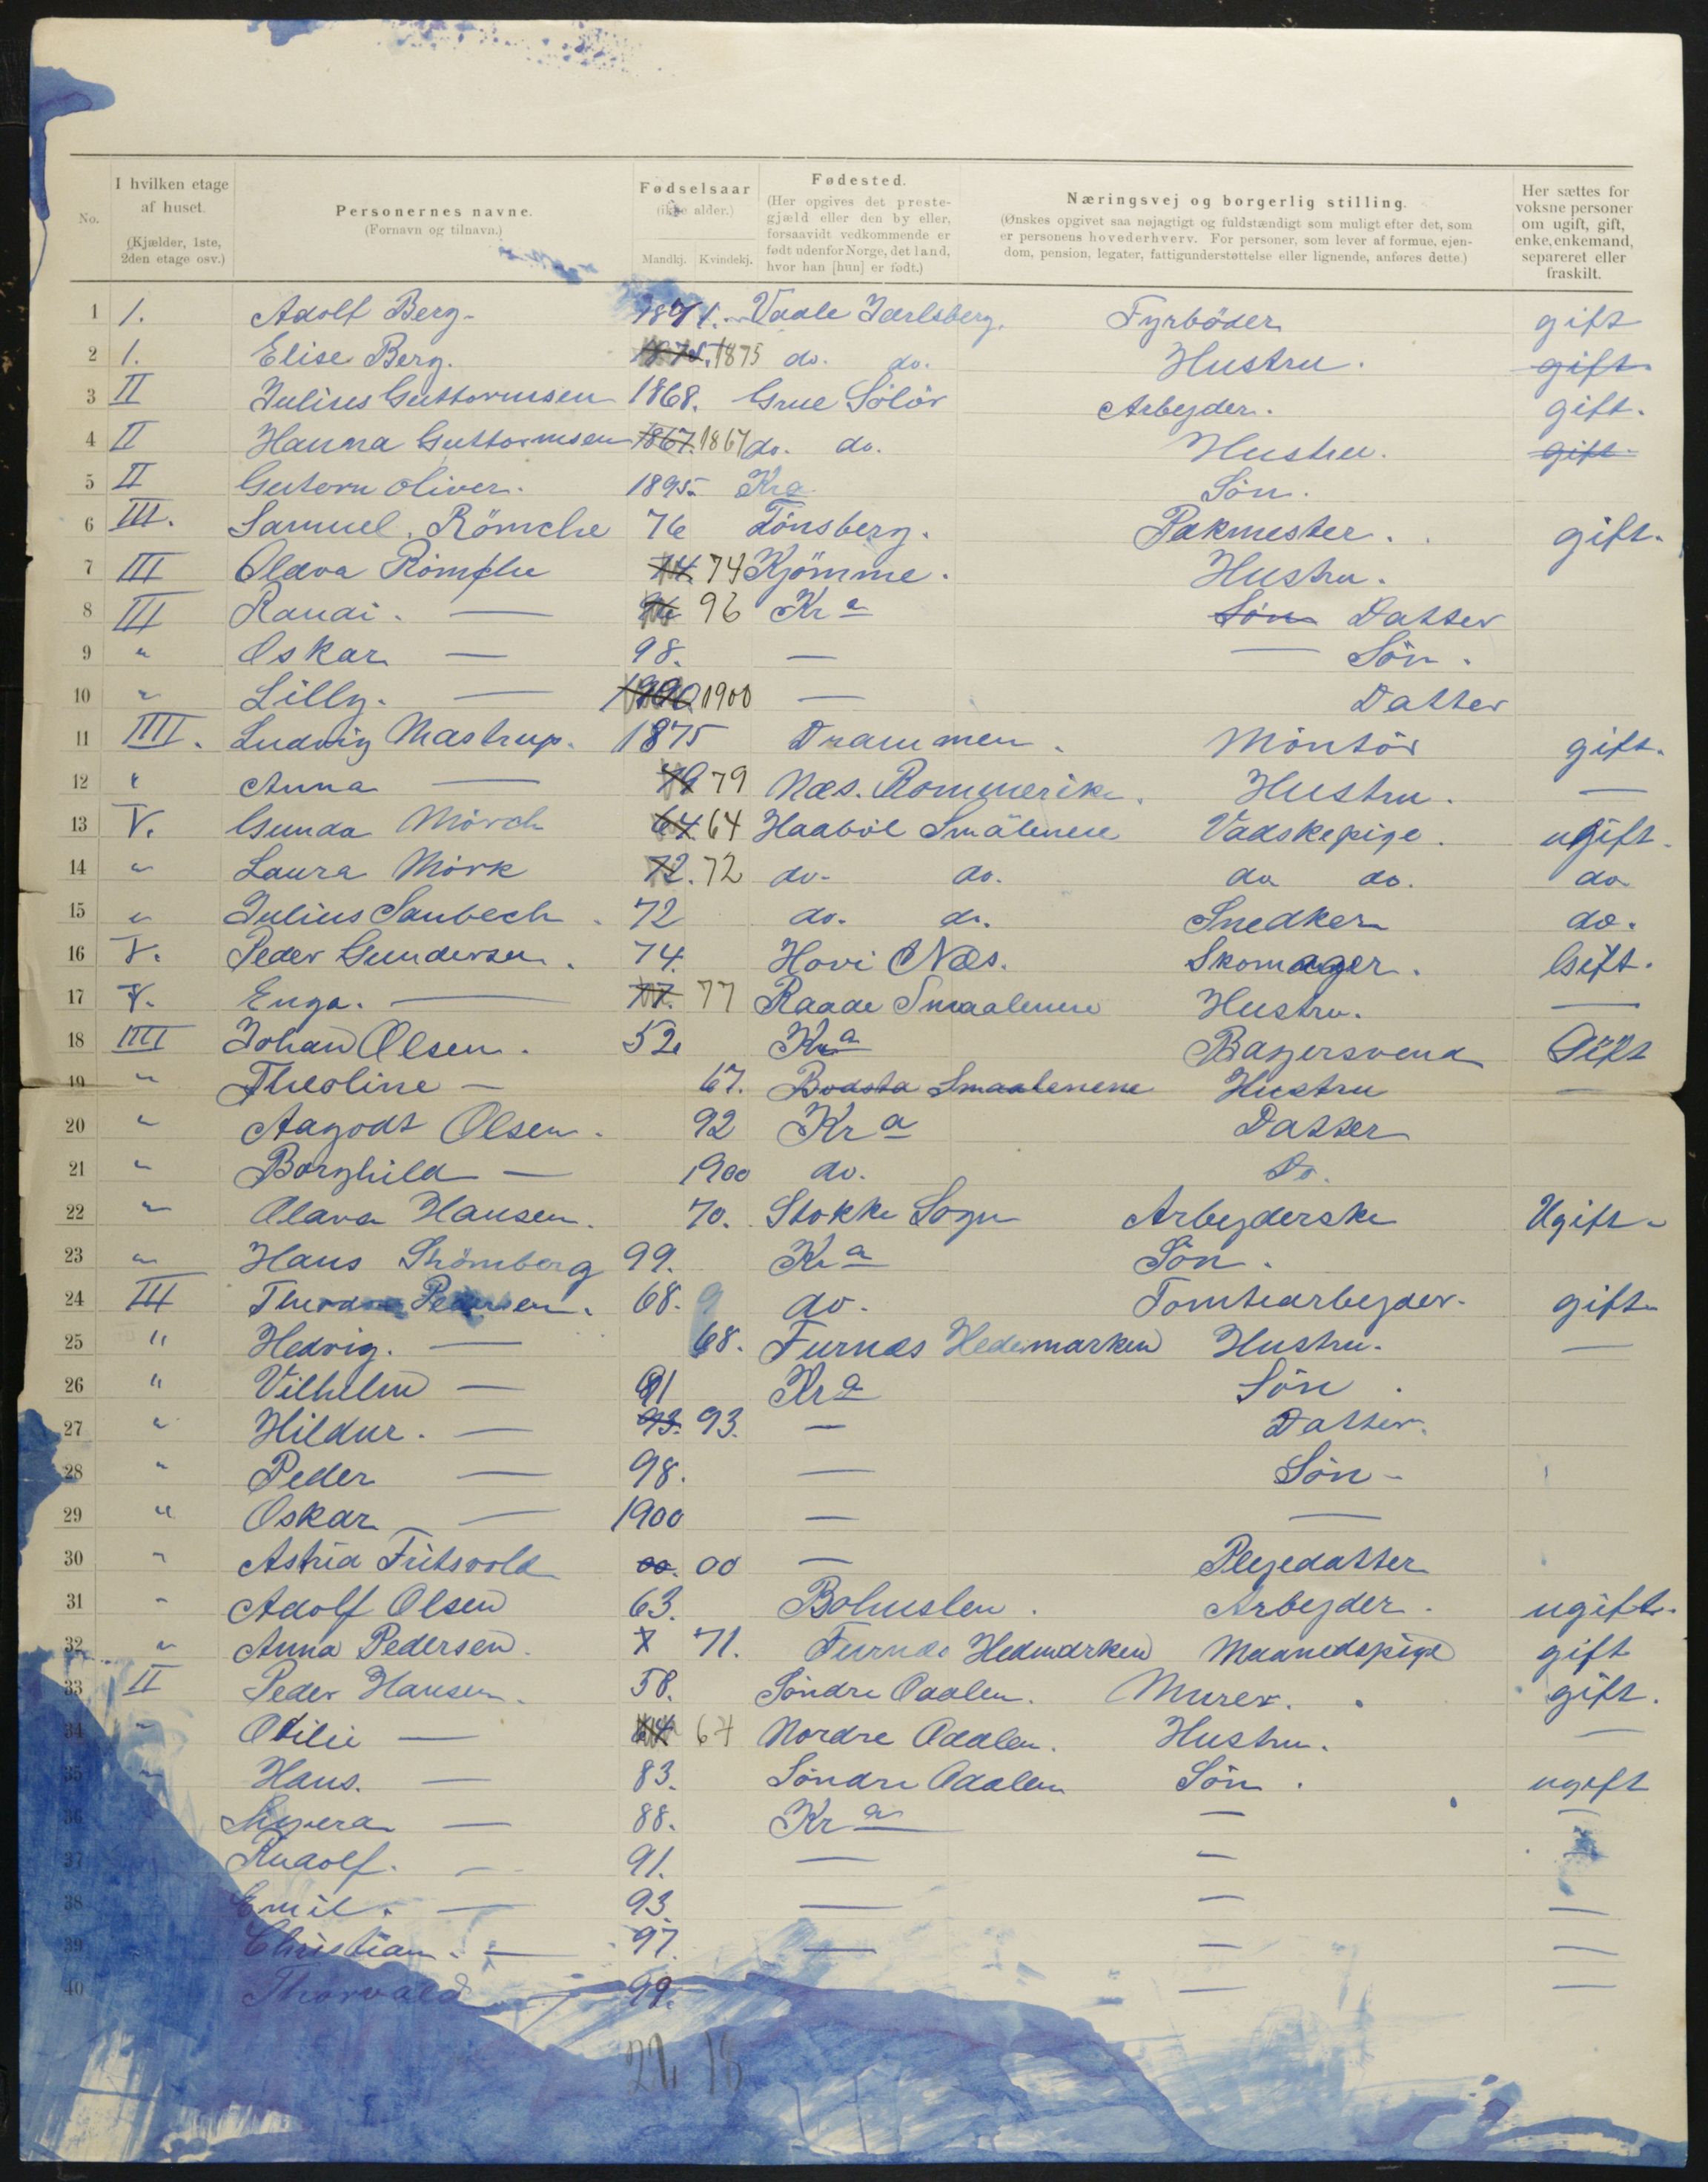 No. I hvilken etage af huset. (Kjælder, 1ste, 2den etage osv.) Personernes navne. (Fornavn og tilnavn.) Fødselsaar (ikke alder.) Mandkj. Kvindekj. Fødested. (Her opgives det prestegjæld eller den by eller, forsaavidt vedkommende er født udenfor Norge, det land, hvor han [hun] er født.) Næringsvej og borgerlig stilling. (Ønskes opgivet saa nøjagtigt og fuldstændigt som muligt efter det, som er personens hovederhverv. For personer, som lever af formue, ejendom, pension, legater, fattigunderstøttelse eller lignende, anføres dette.) Her sættes for voksne personer om ugift, gift, enke, enkemand, separeret eller fraskilt.
1 1. Adolf Berg. 1871. Vaale Jarlsberg. Fyrböder gift
2 1. Elise Berg. 1875. 1875 do. do. Hustru. gift
3 II Julius Guttormsen 1868. Grue Solör Arbejder. gift.
4 II Hanna Guttormsen 1867. 1867 do. do. Hustru. gift.
5 II Gutorm Oliver. 1895. Kra Sön.
6 III. Samuel. Römche 76 Tönsberg. Pakmester. gift.
7 III Olava Römche 74. 74 Kjömme. Hustru.
8 III Randi. — 96 96 Kra Sön Datter
9 " Oskar — 98. — — Sön.
10 " Lilly. — 1900 1900 — Datter
11 IIII. Ludvig Mastrup. 1875 Drammen. Möntör gift.
12 " Anna — 79 79 Næs. Rommerike. Hustru. —
13 V. Gunda Mörch 64. 64 Haaböl Smålenene Vadskepige. ugift.
14 " Laura Mörk 72. 72 do. do. do do. do
15 " Julius Saubech. 72 do. do. Snedker do.
16 V. Peder Gundersen. 74. Hovi Næs. Skomager. Gift.
17 V. Enga. — 77. 77 Raade Smaalenene Hustru. —
18 IIII Johan Olsen. 52 Kra Bagersvend Gift
19 " Theoline — 67. Bodsta Smaalenene Hustru —
20 " Aagodt Olsen. 92 Kra Datter
21 " Borghild — 1900 do. Do.
22 " Olava Hansen. 70. Stokke Sogn Arbejderske Ugift.
23 " Hans Strömberg 99. Kra Sön.
24 III Pedersen. 68. 9 do. Tomtearbejder. gift
25 " Hedvig. — 68. Furnæs Hedemarken Hustru. —
26 " Vilhelm — 91 Kra Sön.
27 " Hildur. — 93. 93. — Datter.
28 " Peder — 98. — Sön
29 " Oskar — 1900 — —
30 " Astrid Fritsvold 00. 00 — Plejedatter
31 " Adolf Olsen 63. Bohuslen. Arbejder. ugift.
32 " Anna Pedersen. 7 71. Furnæs Hedmarken Maanedspige gift
33 II Peder Hansen. 58. Söndre Odalen. Murer. gift.
34 " Otilie — 64 64 Nordre Odalen. Hustru. —
35 " Hans. — 83. Söndre Odalen Sön. ugift
36 — 88. Kra — —
37 Rudolf. — 91. — — —
38 Emil. — 93. — — —
39 Christian. — 97. — — —
40 Thorvald — 99. — —